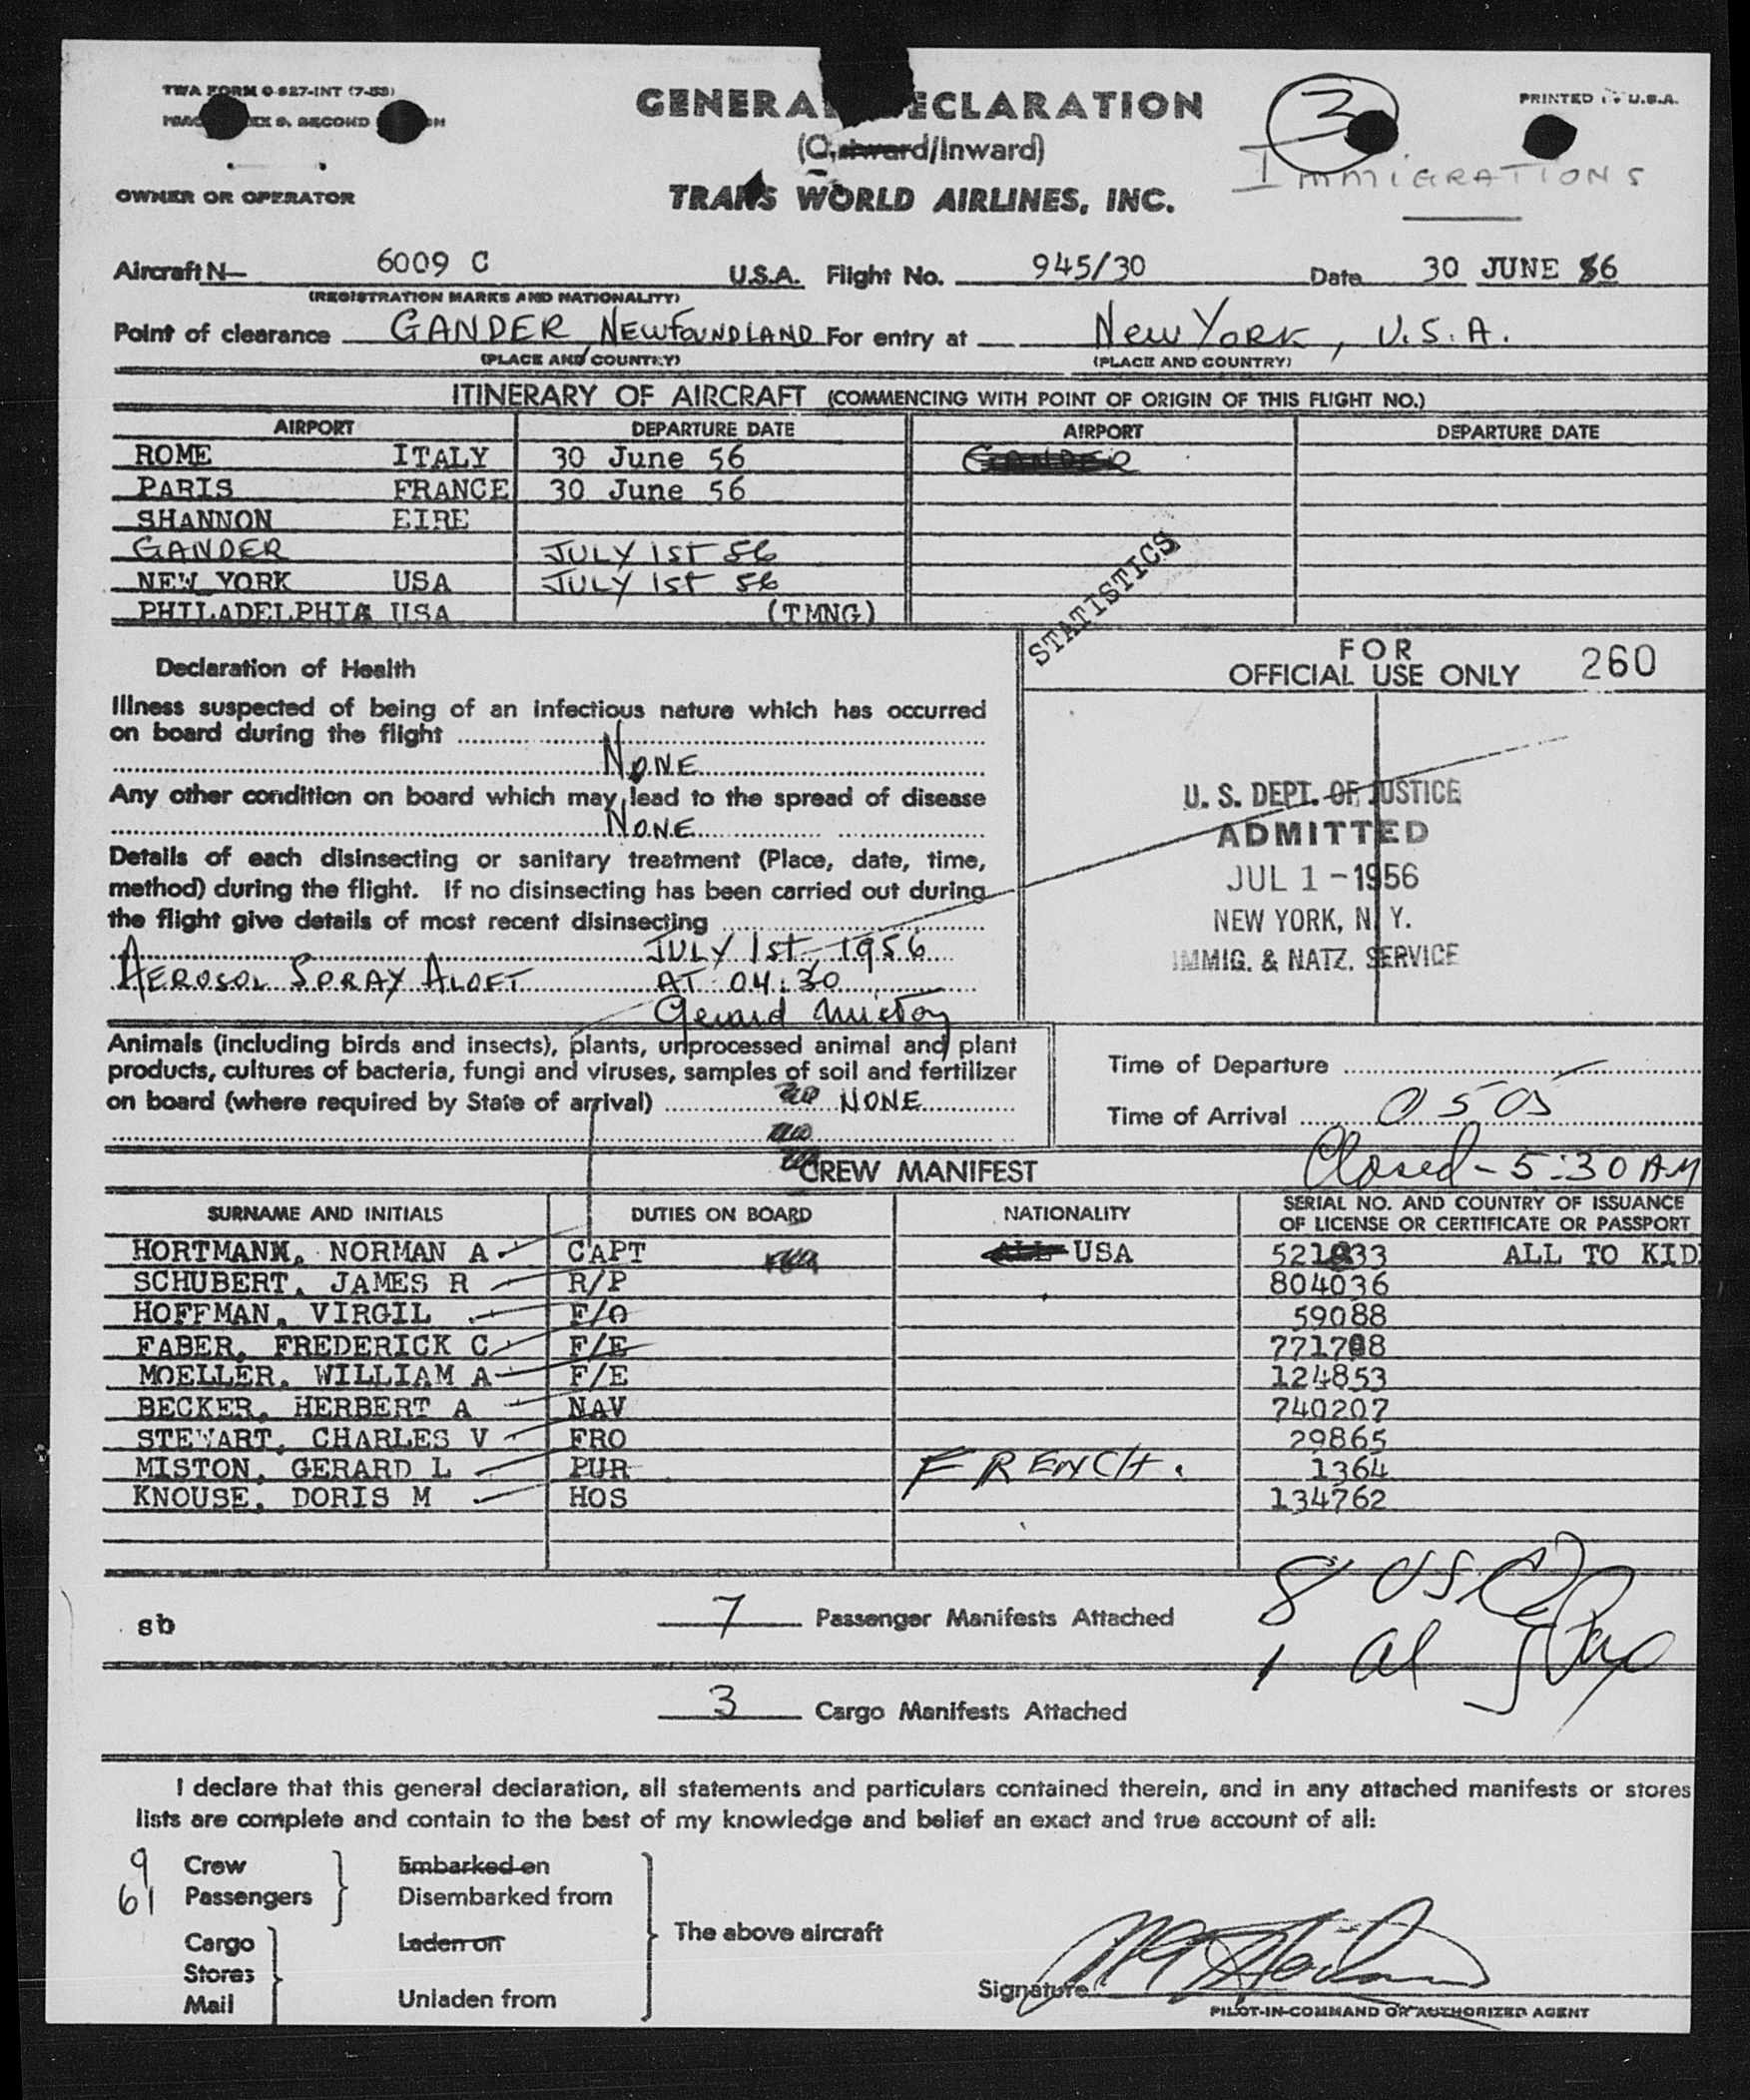 TWA FORM O-827-INT (7-53)
PRINTED U.S.A.
SECOND
3
IMMIGRATIONS
GENERAL DECLARATION
(Outward/Inward)
OWNER OR OPERATOR
TRANS WORLD AIRLINES, INC.
Aircraft N— 6009 C U.S.A. Flight No. 945/30 Date 30 JUNE 56
(REGISTRATION MARKS AND NATIONALITY)
Point of clearance GANDER, NEWFOUNDLAND For entry at New York, U.S.A.
(PLACE AND COUNTRY) (PLACE AND COUNTRY)
ITINERARY OF AIRCRAFT (COMMENCING WITH POINT OF ORIGIN OF THIS FLIGHT NO.)
AIRPORT DEPARTURE DATE AIRPORT DEPARTURE DATE
ROME ITALY 30 June 56 GANDER
PARIS FRANCE 30 June 56
SHANNON EIRE
GANDER JULY 1ST 56
NEW YORK USA JULY 1st 56
PHILADELPHIA USA (TMNG)
STATISTICS
FOR
OFFICIAL USE ONLY 260
Declaration of Health
Illness suspected of being of an infectious nature which has occurred
on board during the flight
NONE
Any other condition on board which may lead to the spread of disease
NONE
Details of each disinsecting or sanitary treatment (Place, date, time,
method) during the flight. If no disinsecting has been carried out during
the flight give details of most recent disinsecting
JULY 1st, 1956
AEROSOL SPRAY ALOFT AT 04:30
Gerard Miston
U. S. DEPT. OF JUSTICE
ADMITTED
JUL 1 - 1956
NEW YORK, N. Y.
IMMIG. & NATZ. SERVICE
Animals (including birds and insects), plants, unprocessed animal and plant
products, cultures of bacteria, fungi and viruses, samples of soil and fertilizer
on board (where required by State of arrival) NONE
Time of Departure
Time of Arrival 0505
Closed - 5:30 AM
CREW MANIFEST
SURNAME AND INITIALS DUTIES ON BOARD NATIONALITY SERIAL NO. AND COUNTRY OF ISSUANCE
OF LICENSE OR CERTIFICATE OR PASSPORT
HORTMANN, NORMAN A CAPT ALL USA ALL TO KID
SCHUBERT, JAMES R R/P 804036
HOFFMAN, VIRGIL F/O 59088
FABER, FREDERICK C F/E
MOELLER, WILLIAM A F/E 124853
BECKER, HERBERT A NAV 740207
STEWART, CHARLES V FRO 29865
MISTON, GERARD L PUR FRENCH. 1364
KNOUSE, DORIS M HOS 134762
8 USC
1 al
sb 7 Passenger Manifests Attached
3 Cargo Manifests Attached
I declare that this general declaration, all statements and particulars contained therein, and in any attached manifests or stores
lists are complete and contain to the best of my knowledge and belief an exact and true account of all:
9 Crew Embarked on
61 Passengers Disembarked from
The above aircraft
Cargo Laden on
Stores
Mail Unladen from
Signature
PILOT-IN-COMMAND OR AUTHORIZED AGENT